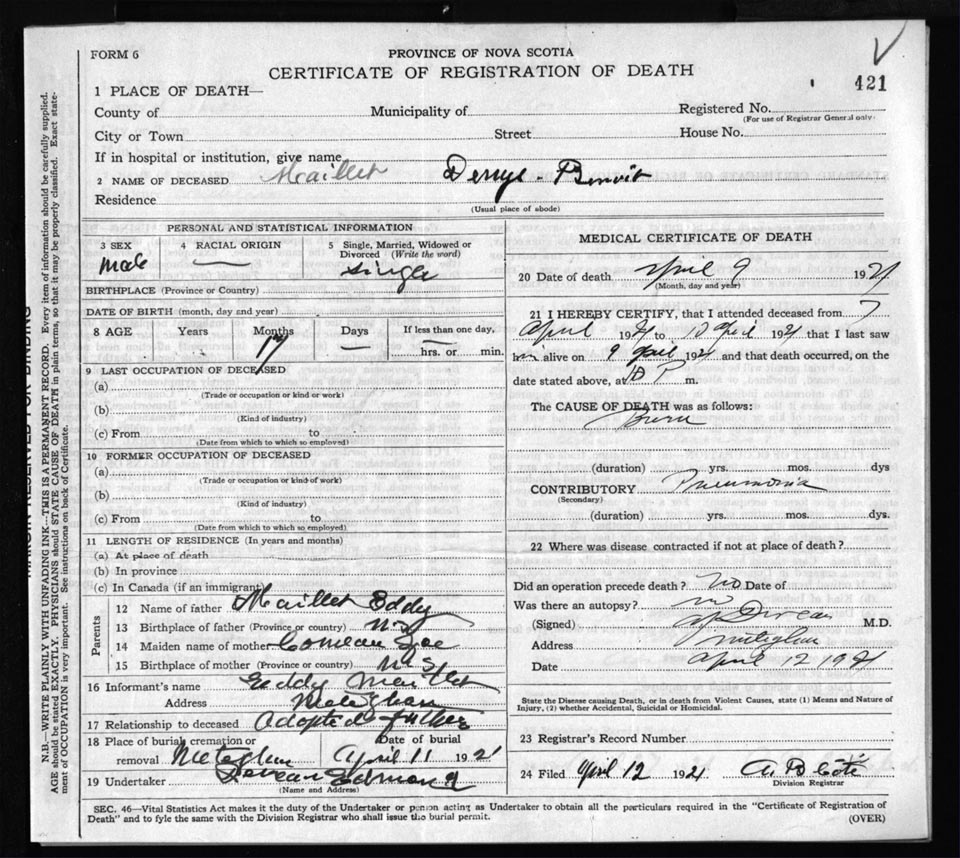 FORM 6
PROVINCE OF NOVA SCOTIA
CERTIFICATE OF REGISTRATION OF DEATH
421
1 PLACE OF DEATH—
County of Municipality of Registered No.
(For use of Registrar General only)
City or Town Street House No.
If in hospital or institution, give name
2 NAME OF DECEASED Maillet Benoit
Residence
(Usual place of abode)
PERSONAL AND STATISTICAL INFORMATION
3 SEX 4 RACIAL ORIGIN 5 Single, Married, Widowed or
Divorced (Write the word)
Male — Single
BIRTHPLACE (Province or Country)
DATE OF BIRTH (month, day and year)
8 AGE Years Months Days If less than one day,
17 — hrs. or min.
9 LAST OCCUPATION OF DECEASED
(a)
(Trade or occupation or kind or work)
(b)
(Kind of industry)
(c) From to
(Date from which to which so employed)
10 FORMER OCCUPATION OF DECEASED
(a)
(Trade or occupation or kind of work)
(b)
(Kind of industry)
(c) From to
(Date from which to which so employed)
11 LENGTH OF RESIDENCE (In years and months)
(a) At place of death
(b) In province
(c) In Canada (if an immigrant)
Parents
12 Name of father Maillet Eddy
13 Birthplace of father (Province or country) N.S
14 Maiden name of mother Comeau Zoe
15 Birthplace of mother (Province or country) N.S
16 Informant's name Eddy Maillet
Address Meteghan
17 Relationship to deceased Adopted father
18 Place of burial, cremation or Date of burial
removal Meteghan April 11 1921
19 Undertaker Deveau Edmond
(Name and Address)
MEDICAL CERTIFICATE OF DEATH
20 Date of death April 9 1921
(Month, day and year)
21 I HEREBY CERTIFY, that I attended deceased from 7
April 1921 to 10 April 1921 that I last saw
him alive on 9 April 1921 and that death occurred, on the
date stated above, at 10 P m.
The CAUSE OF DEATH was as follows:
Burn
(duration) yrs. mos. dys
CONTRIBUTORY Pneumonia
(Secondary)
(duration) yrs. mos. dys.
22 Where was disease contracted if not at place of death?
Did an operation precede death? No Date of
Was there an autopsy? no
(Signed) M.D.
Address Meteghan
Date April 12 1921
State the Disease causing Death, or in death from Violent Causes, state (1) Means and Nature of
Injury, (2) whether Accidental, Suicidal or Homicidal.
23 Registrar's Record Number
24 Filed April 12 1921 A B Coté
Division Registrar
SEC. 46—Vital Statistics Act makes it the duty of the Undertaker or person acting as Undertaker to obtain all the particulars required in the "Certificate of Registration of
Death" and to fyle the same with the Division Registrar who shall issue the burial permit.
(OVER)
MARGIN RESERVED FOR BINDING
N.B.—WRITE PLAINLY WITH UNFADING INK—THIS IS A PERMANENT RECORD. Every item of information should be carefully supplied.
AGE should be stated EXACTLY. PHYSICIANS should STATE CAUSE OF DEATH in plain terms, so that it may be properly classified. Exact state-
ment of OCCUPATION is very important. See instructions on back of Certificate.